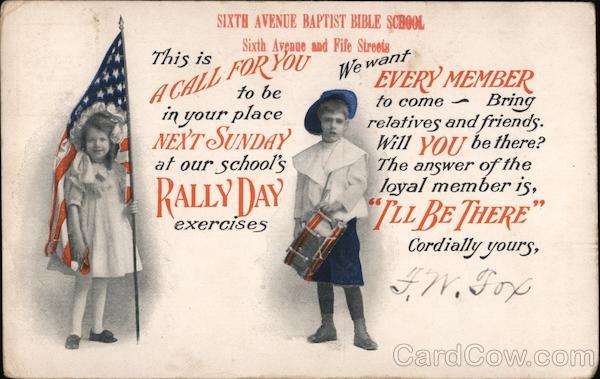 SIXTH AVENUE BAPTIST BIBLE SCHOOL
Sixth Avenue and Fife Streets
This is
A CALL FOR YOU
to be
in your place
NEXT SUNDAY
at our school's
RALLY DAY
exercises
We want
EVERY MEMBER
to come — Bring
relatives and friends.
Will YOU be there?
The answer of the
loyal member is,
"I'LL BE THERE"
Cordially yours,
F. W. Fox
CardCow.com